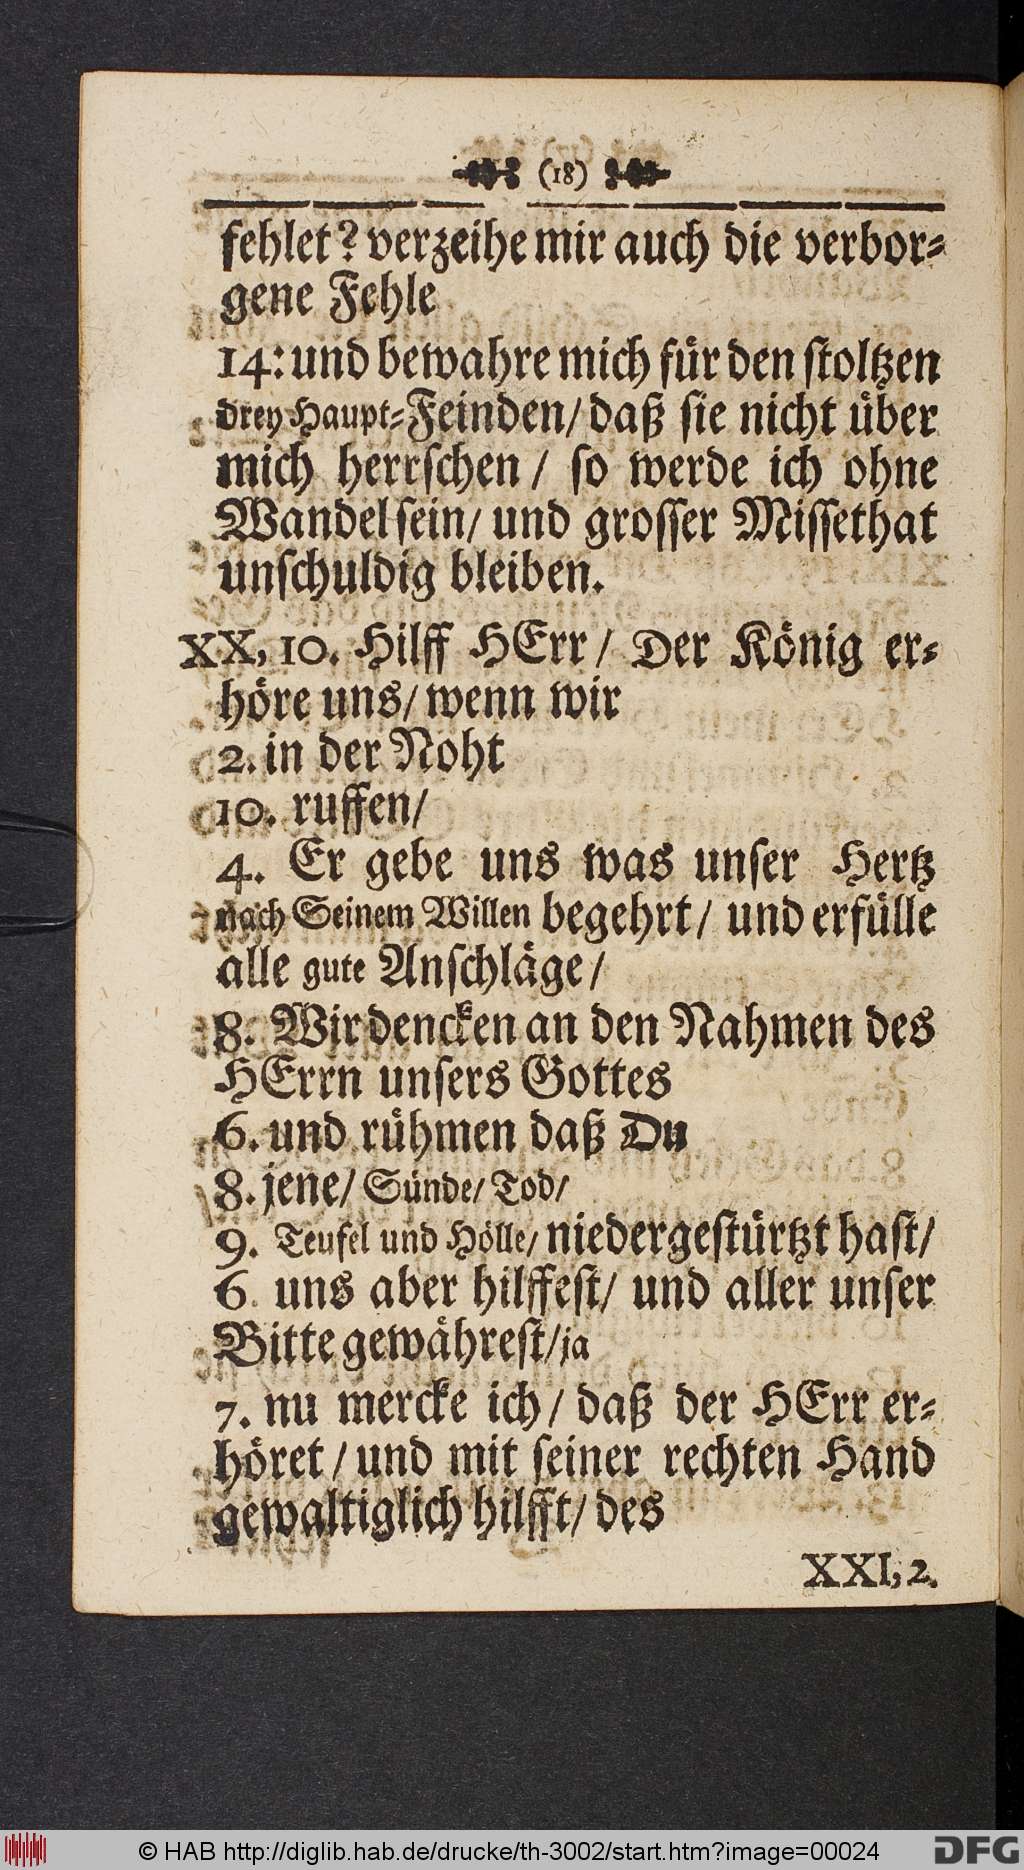 (18)
fehlet? verzeihe mir auch die verbor-
gene Fehle
14: und bewahre mich für den stoltzen
drey Haupt-Feinden/ daß sie nicht über
mich herrschen/ so werde ich ohne
Wandel sein/ und grosser Missethat
unschuldig bleiben.
XX, 10. Hilff HErr/ Der König er-
höre uns/ wenn wir
2. in der Noht
10. ruffen/
4. Er gebe uns was unser Hertz
nach Seinem Willen begehrt/ und erfülle
alle gute Anschläge/
8. Wir dencken an den Nahmen des
HErrn unsers Gottes
6. und rühmen daß Du
8. jene/ Sünde/ Tod/
9. Teufel und Hölle/ niedergestürtzt hast/
6. uns aber hilffest/ und aller unser
Bitte gewährest/ ja
7. nu mercke ich/ daß der HErr er-
höret/ und mit seiner rechten Hand
gewaltiglich hilfft/ des
XXI, 2.
© HAB http://diglib.hab.de/drucke/th-3002/start.htm?image=00024
DFG